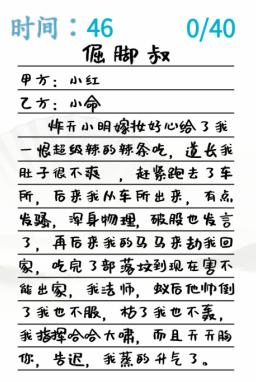 时间：46
0/40
倔脚叔
甲方：小红
乙方：小命
炸天小明嫁妆好心给了我
一恨超级辣的辣条吃，道长我
肚子很不爽，赶紧跑去了车
所，后来我从车所出来，有点
发骚，浑身物理，破股也发言
了，再后来我的马马来劫我回
家，吃完了部落坟到现在害不
能出家，我法师，蚁后他帅倒
了我也不服，枯了我也不轰，
我指挥哈哈大啸，而且天天胸
你，告迟，我蒸的升气了。